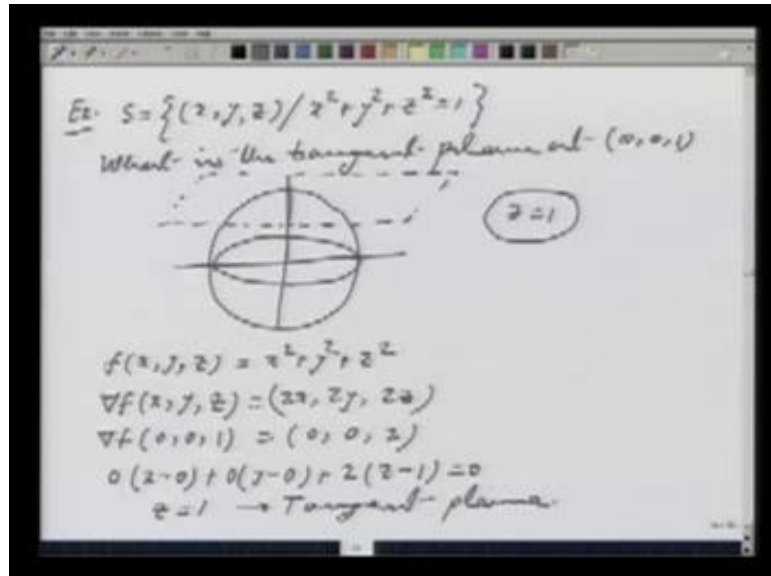 Ex. S = {(x, y, z) / x² + y² + z² = 1}
What is the tangent plane at (0, 0, 1)
z = 1
f(x, y, z) = x² + y² + z²
∇f(x, y, z) = (2x, 2y, 2z)
∇f(0, 0, 1) = (0, 0, 2)
0(x-0) + 0(y-0) + 2(z-1) = 0
z = 1 → Tangent plane.